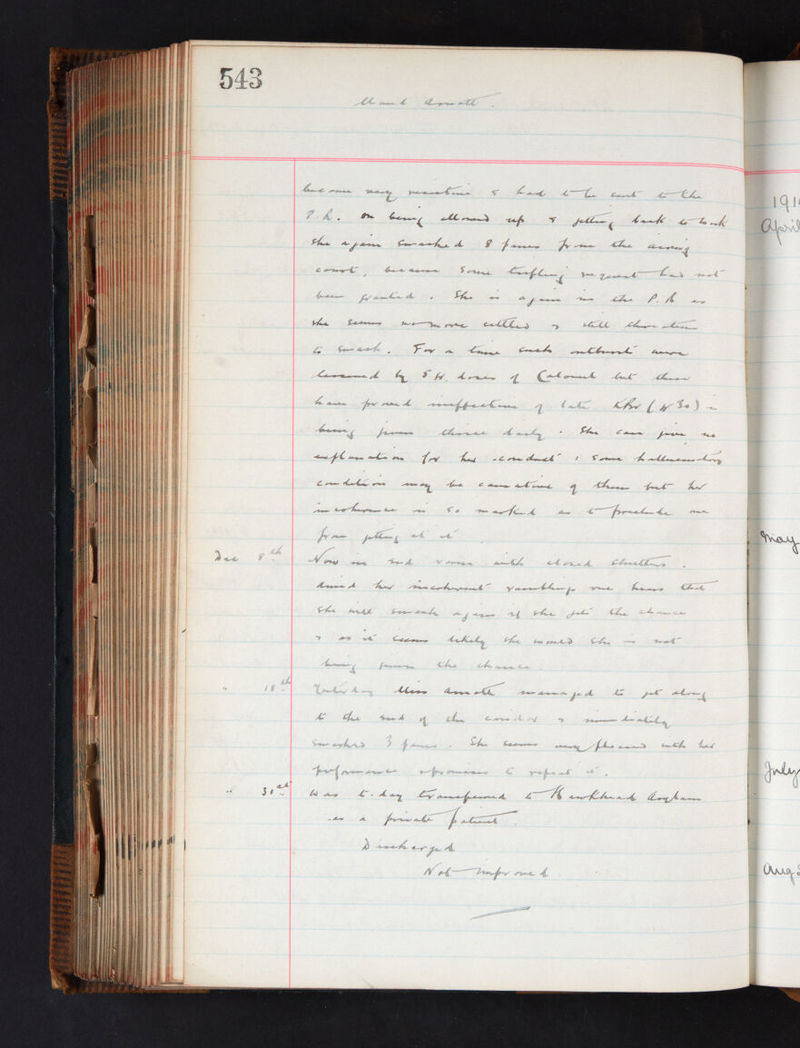 543
Maud Arnott.
become very resistive & had to be sent to the
P.R. On being allowed up & getting back to work
she again smashed 8 panes from the airing
court, because some trifling request had not
been granted. She is again in the P.R as
she seems no more settled & still threatens
to smash. For a time such outbursts were
lessened by 5 gr. doses of Calomel but these
have proved ineffective & of late KBr (gr 30) is
being given thrice daily. She can give no
explanation for her conduct: some hallucinatory
condition may be causative of them but her
incoherence is so marked as to preclude one
from getting at it.
Dec 8th Now in end room with closed shutters.
Amid her incoherent ramblings one hears that
she will smash again if she gets the chance
& as it seems likely she would she is not
being given the chance.
" 18th Yesterday Miss Arnott managed to get along
to the end of the corridor & immediately
smashed 3 panes. She seems very pleased with her
performance & promises to repeat it.
" 31st Was to-day transferred to Hawkhead Asylum
as a private patient.
Discharged
Not improved
191
April
May
July
Aug